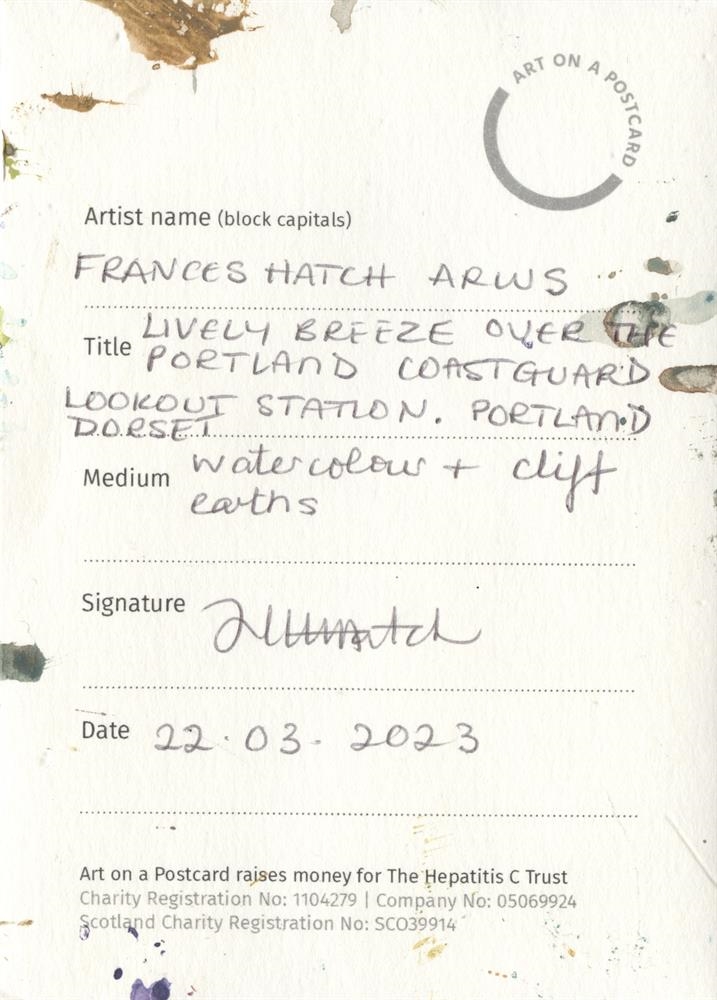 ART ON A POSTCARD
Artist name (block capitals)
FRANCES HATCH ARWS
Title LIVELY BREEZE OVER THE
PORTLAND COASTGUARD
LOOKOUT STATION. PORTLAND
DORSET
Medium watercolour + cliff
earths
Signature
Date 22.03.2023
Art on a Postcard raises money for The Hepatitis C Trust
Charity Registration No: 1104279 | Company No: 05069924
Scotland Charity Registration No: SCO39914